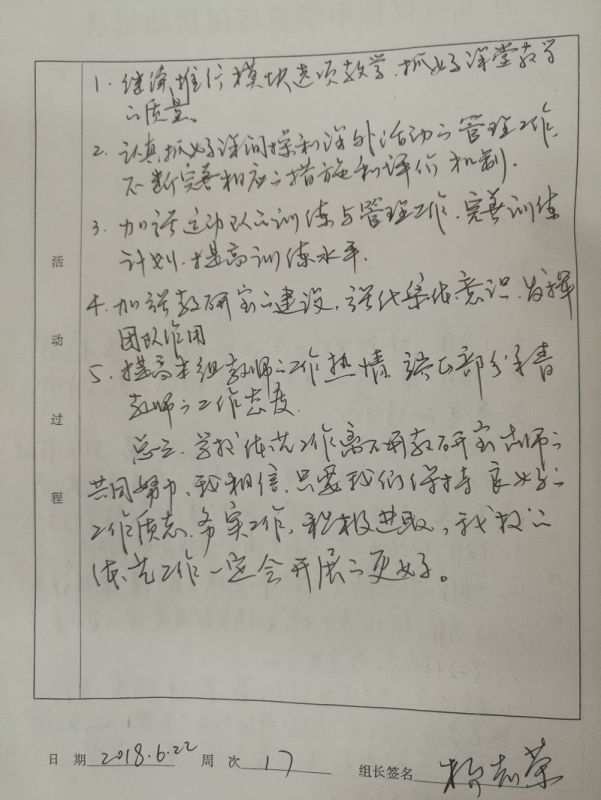 1. 继续推行模块选项教学，抓好课堂教学
的质量。
2. 认真抓好课间操和课外活动的管理工作，
不断完善相应的措施和评价机制.
3. 加强运动队的训练与管理工作，完善训练
计划，提高训练水平.
4. 加强教研室的建设，强化集体意识，发挥
团队作用
5. 提高本组教师的工作热情，端正部分青
教师的工作态度.
总之，学校体艺工作离不开教研室老师的
共同努力，我相信，只要我们保持良好的
工作质态，务实工作，积极进取，我校的
体艺工作一定会开展的更好。
活动过程
日期 2018.6.22 周次 17 组长签名